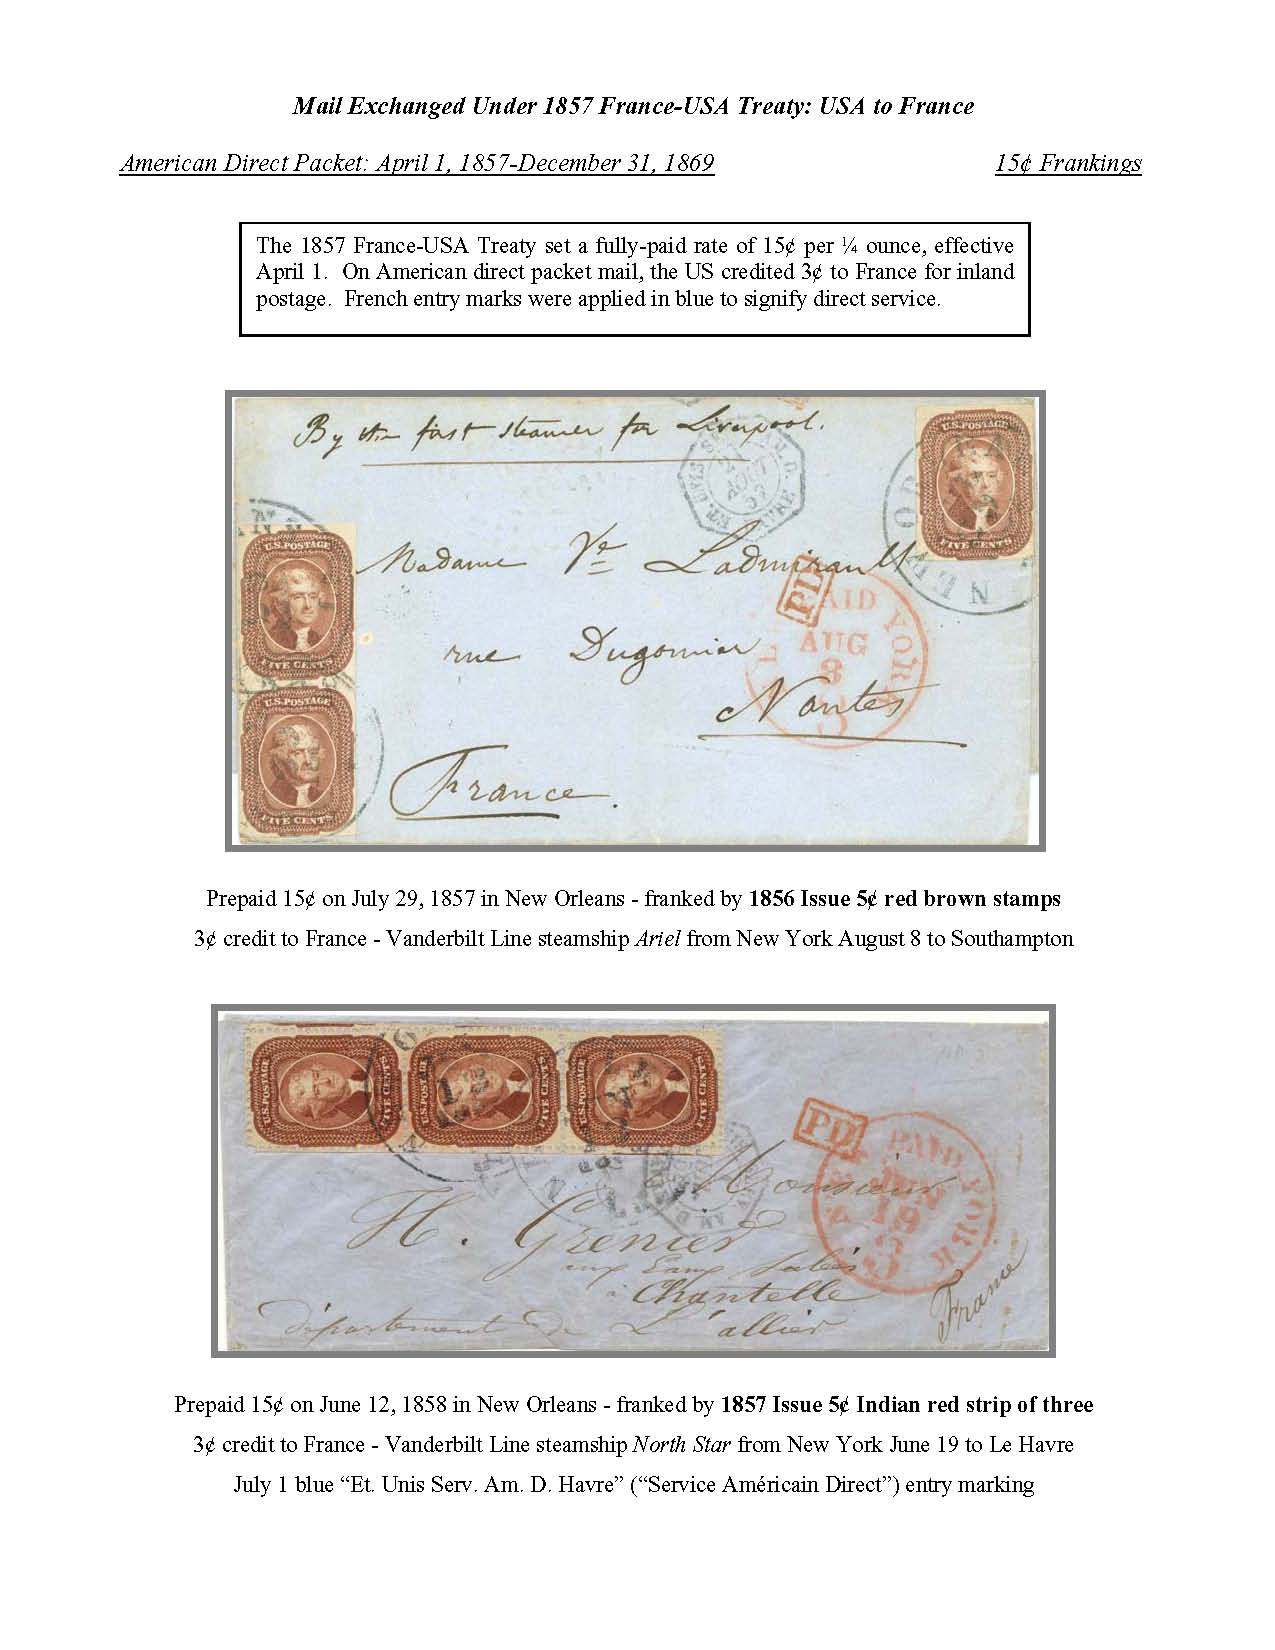 Mail Exchanged Under 1857 France-USA Treaty: USA to France
American Direct Packet: April 1, 1857-December 31, 1869 15¢ Frankings
The 1857 France-USA Treaty set a fully-paid rate of 15¢ per ¼ ounce, effective
April 1. On American direct packet mail, the US credited 3¢ to France for inland
postage. French entry marks were applied in blue to signify direct service.
By the first steamer for Liverpool.
U.S. POSTAGE
FIVE CENTS
AOUT
57
Madame Ve Ladmirault
PD
PAID
AUG
8
3
YORK
U.S. POSTAGE
FIVE CENTS
rue Dugommier
Nantes
U.S. POSTAGE
FIVE CENTS
France.
Prepaid 15¢ on July 29, 1857 in New Orleans - franked by 1856 Issue 5¢ red brown stamps
3¢ credit to France - Vanderbilt Line steamship Ariel from New York August 8 to Southampton
U.S. POSTAGE FIVE CENTS
U.S. POSTAGE FIVE CENTS
U.S. POSTAGE FIVE CENTS
PD
NEW PAID YORK
JUN
19
3
Monsieur
H. Grenier
à Chantelle
département de L'allier
France
Prepaid 15¢ on June 12, 1858 in New Orleans - franked by 1857 Issue 5¢ Indian red strip of three
3¢ credit to France - Vanderbilt Line steamship North Star from New York June 19 to Le Havre
July 1 blue “Et. Unis Serv. Am. D. Havre” (“Service Américain Direct”) entry marking